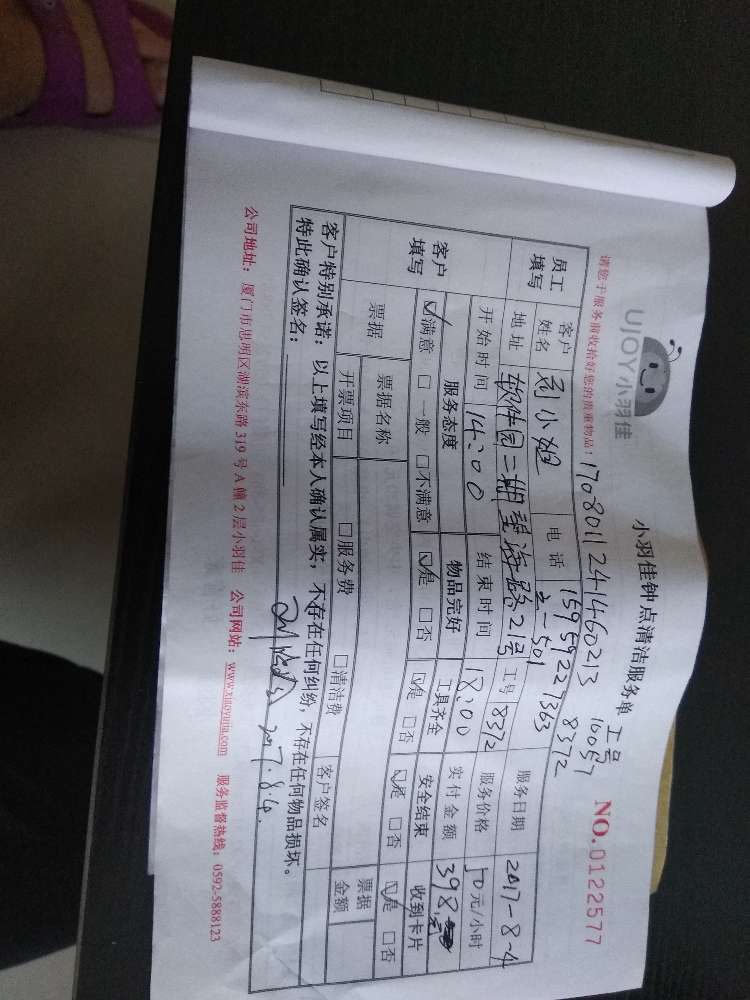 UJOY小羽佳
小羽佳钟点清洁服务单
NO.0122577
请您于服务前收拾好您的贵重物品:
1708011241460213
工号 16057
8372
员工填写
客户姓名 刘小姐 电话 15959227363 服务日期 2017-8-4
地址 软件园二期望海路21号 之一501 工号 8372 服务价格 50元/小时
开始时间 14:00 结束时间 18:00 实付金额 398元
客户填写
服务态度 物品完好 工具齐全 安全结束 收到卡片
☑满意 □一般 □不满意 ☑是 □否 ☑是 □否 ☑是 □否 ☑是 □否
票据 票据名称 客户签名 票据金额
开票项目 □服务费 □清洁费
客户特别承诺:以上填写经本人确认属实,不存在任何纠纷,不存在任何物品损坏。
特此确认签名:
2017.8.4.
公司地址:厦门市思明区湖滨东路319号A幢2层小羽佳 公司网站:www.xiaoyujia.com 服务监督热线:0592-5888123